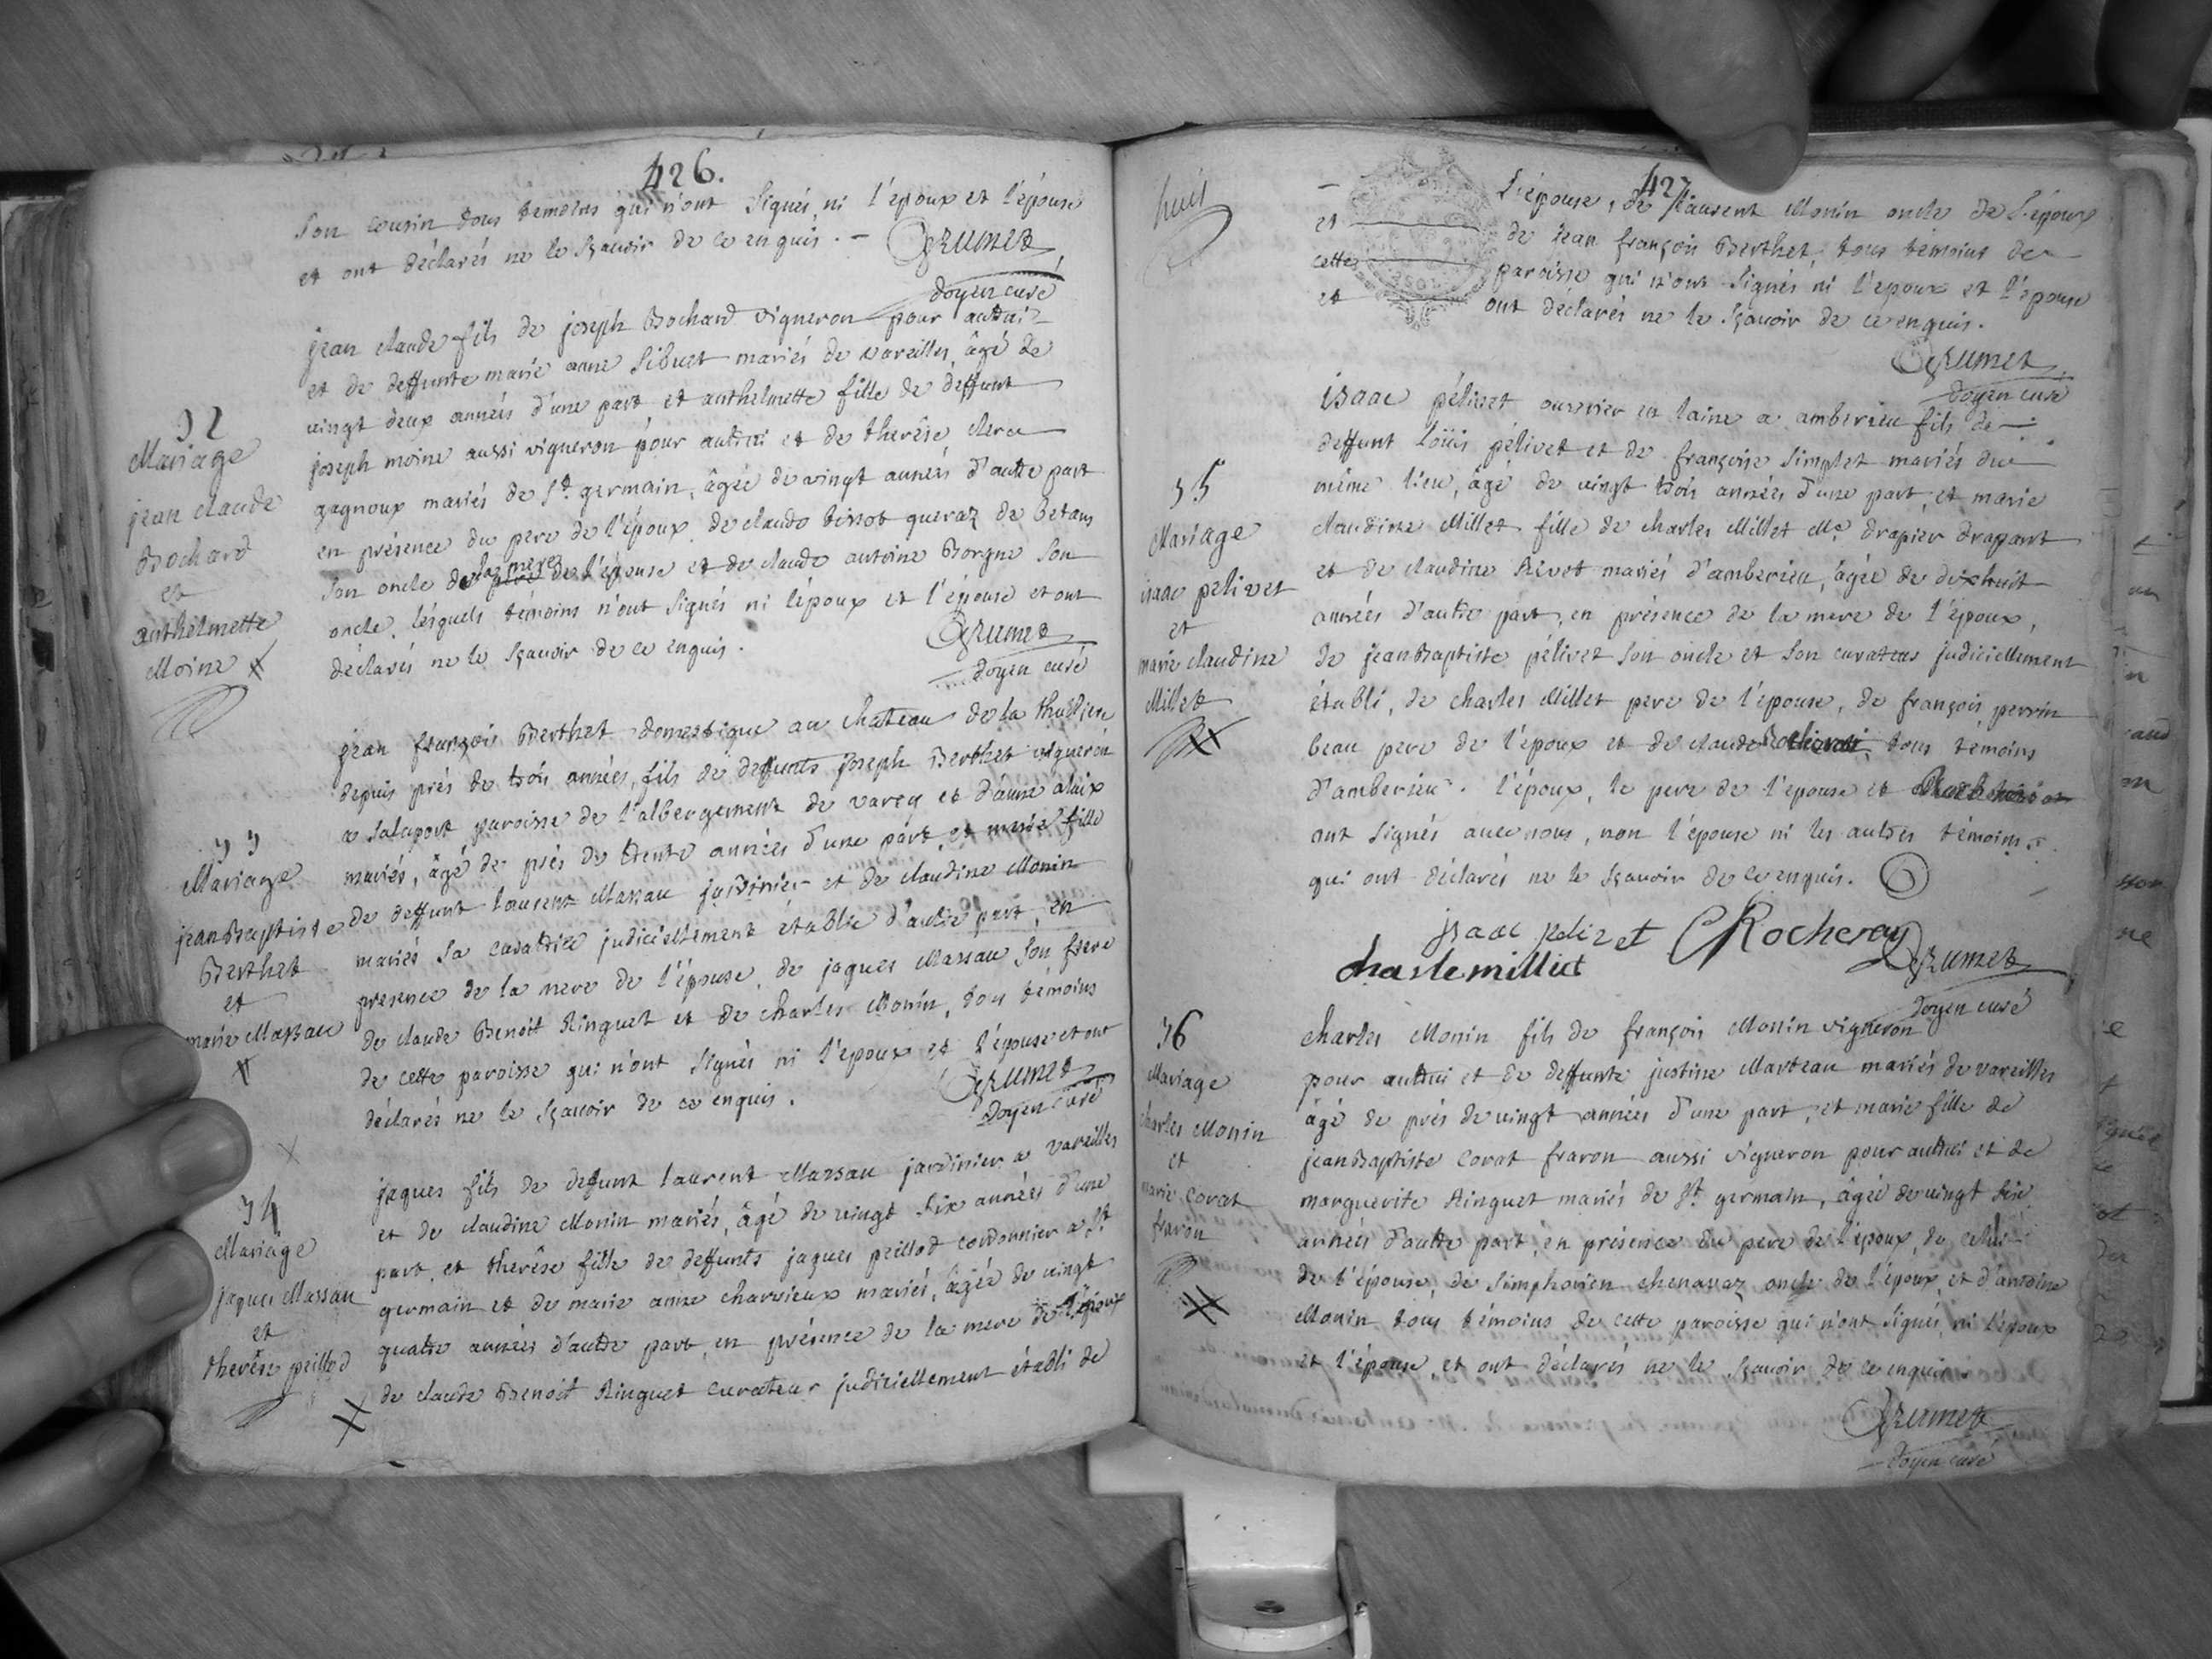 426.
son cousin tous temoins qui n'ont signés, ni l'époux et l'épouse
et ont déclarés ne le sçavoir de ce enquis. - Grumet
doyen curé
32
Mariage
jean claude
Bochard
et
anthelmette
Moine
jean claude fils de joseph Bochard vigneron pour autrui
et de deffunte marie anne Sibuet mariés de vareilles, âgé de
vingt deux années d'une part et anthelmette fille de deffunt
joseph moine aussi vigneron pour autrui et de therèse clerc
gagnoux mariés de St germain, âgée de vingt années d'autre part
en présence du pere de l'époux, de claude tissot queraz de betans
son oncle de la mere de l'épouse et de claude antoine Borgne son
oncle, lésquels témoins n'ont signés ni l'époux et l'épouse et ont
déclarés ne le sçavoir de ce enquis. Grumet
doyen curé
33
Mariage
jean Baptiste
Berthet
et
marie Massau
jean françois Berthet domestique au chateau de la
depuis prés de trois années, fils de deffunts joseph Berthet vigneron
a Salaport paroisse de l'albergement de varey et d'anne alaix
mariés, âgé de prés de trente années d'une part, et marie fille
de deffunt laurent Massau jardinier et de claudine Monin
mariés sa curatrice judiciellement établie d'autre part, en
presence de la mere de l'épouse, de jaques Massau son frere
de claude Benoit Ringuet et de charles Monin, tous témoins
de cette paroisse qui n'ont signés ni l'époux et l'épouse et ont
déclarés ne le sçavoir de ce enquis. Grumet
doyen curé
34
Mariage
jaques Massau
et
therèse peillod
jaques fils de defunt laurent Massau jardinier a vareilles
et de claudine Monin mariés, âgé de vingt six années d'une
part, et therêse fille de deffunts jaques peillod cordonnier a St
germain et de marie anne charvieux mariés, âgée de vingt
quatre années d'autre part, en présence de la mere de l'époux
de claude Benoit Ringuet curateur judiciellement établi de
huit
427
L'épouse, de laurent Monin oncle de l'époux
et de jean françois Berthet, tous témoins de
cette paroisse qui n'ont signés ni l'époux et l'épouse
et ont déclarés ne le sçavoir de ce enquis.
Grumet
doyen curé
35
Mariage
isaac pelivet
et
marie claudine
Millet
isaac pélivet ouvrier en laine a amberieu fils de
deffunt loüis pélivet et de françoise Simplet mariés du
même lieu, âgé de vingt trois années d'une part, et marie
claudine Millet fille de charles Millet Me drapier drapant
et de claudine Rivet mariés d'amberieu, âgée de dixhuit
années d'autre part, en présence de la mere de l'époux,
de jean Baptiste pélivet son oncle et son curateur judiciellement
établi, de charles Millet pere de l'épouse, de françois perrin
beau pere de l'époux et de claude tous témoins
d'amberieu. l'époux, le pere de l'épouse et
ont signés avec nous, non l'épouse ni les autres témoins
qui ont déclarés ne le sçavoir de ce enquis.
jsaac pelivet CRocheray
charle millet Grumet
doyen curé
36
Mariage
charles Monin
et
marie Corat
fraron
charles Monin fils de françois Monin vigneron
pour autrui et de deffunte justine Marteau mariés de vareilles
âgé de prés de vingt années d'une part, et marie fille de
jean Baptiste Corat fraron aussi vigneron pour autrui et de
marguerite Ringuet mariés de St germain, âgée de vingt six
années d'autre part, en présence du pere de l'époux, de celui
de l'épouse, de Simphorien chenavaz oncle de l'époux, et d'antoine
Monin tous témoins de cette paroisse qui n'ont signés, ni l'époux
et l'épouse, et ont déclarés ne le sçavoir de ce enquis.
Grumet
doyen curé